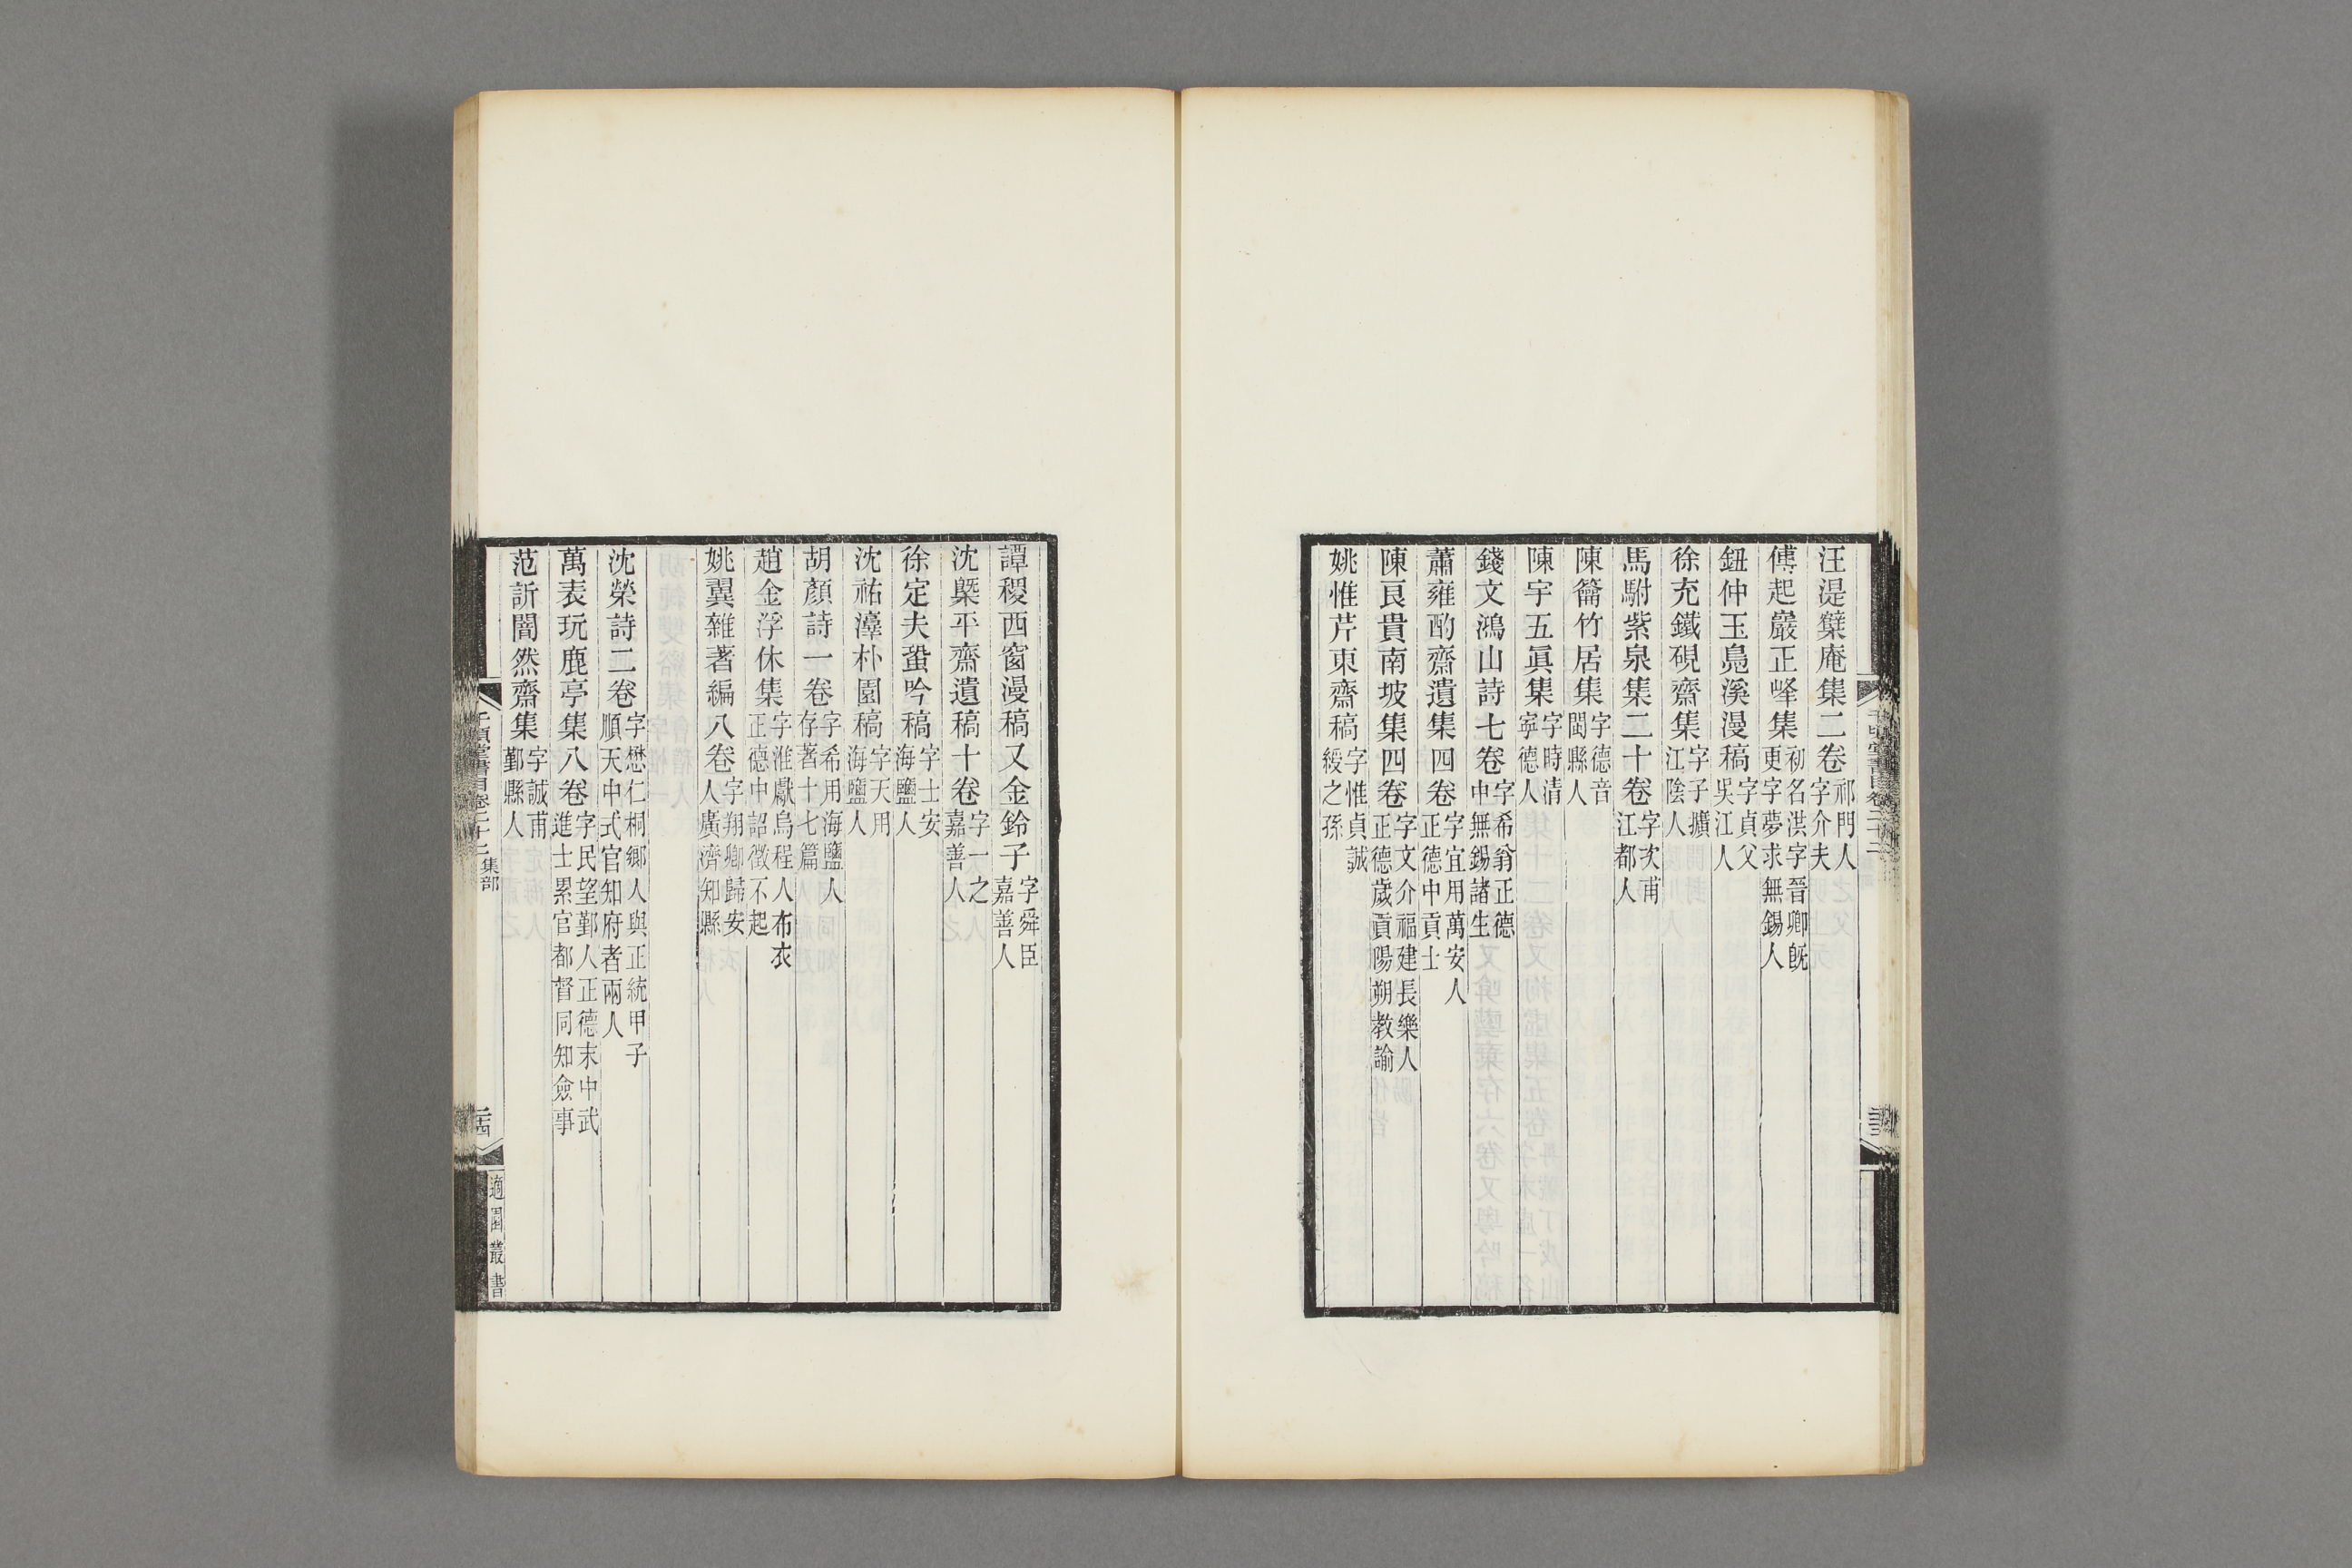 汪湜櫱庵集二卷祁門人字介夫
傅起巖正峰集初名洪字晉卿旣更字夢求無錫人
鈕仲玉鳧溪漫稿字貞父吳江人
徐充鐵硯齋集字子擴江陰人
馬駙紫泉集二十卷字次甫江都人
陳籥竹居集字德音閩縣人
陳宇五眞集字時清寧德人
錢文鴻山詩七卷字希翁正德中無錫諸生
蕭雍酌齋遺集四卷字宜用萬安人正德中貢士
陳良貴南坡集四卷字文介福建長樂人正德歲貢陽朔教諭
姚惟芹東齋稿字惟貞誠綬之孫
譚稷西窗漫稿又金鈴子字舜臣嘉善人
沈槩平齋遺稿十卷字一之嘉善人
徐定夫蛩吟稿字士安海鹽人
沈祐濠朴園稿字天用海鹽人
胡顏詩一卷字希用海鹽人存著十七篇
趙金浮休集字淮獻烏程人布衣正德中詔徵不起
姚翼雜著編八卷字翔卿歸安人廣濟知縣
沈榮詩二卷字懋仁桐鄉人與正統甲子順天中式官知府者兩人
萬表玩鹿亭集八卷字民望鄞人正德末中武進士累官都督同知僉事
范訢闇然齋集字誠甫鄞縣人
千頃堂書目卷二十二 集部
二十四
適園叢書